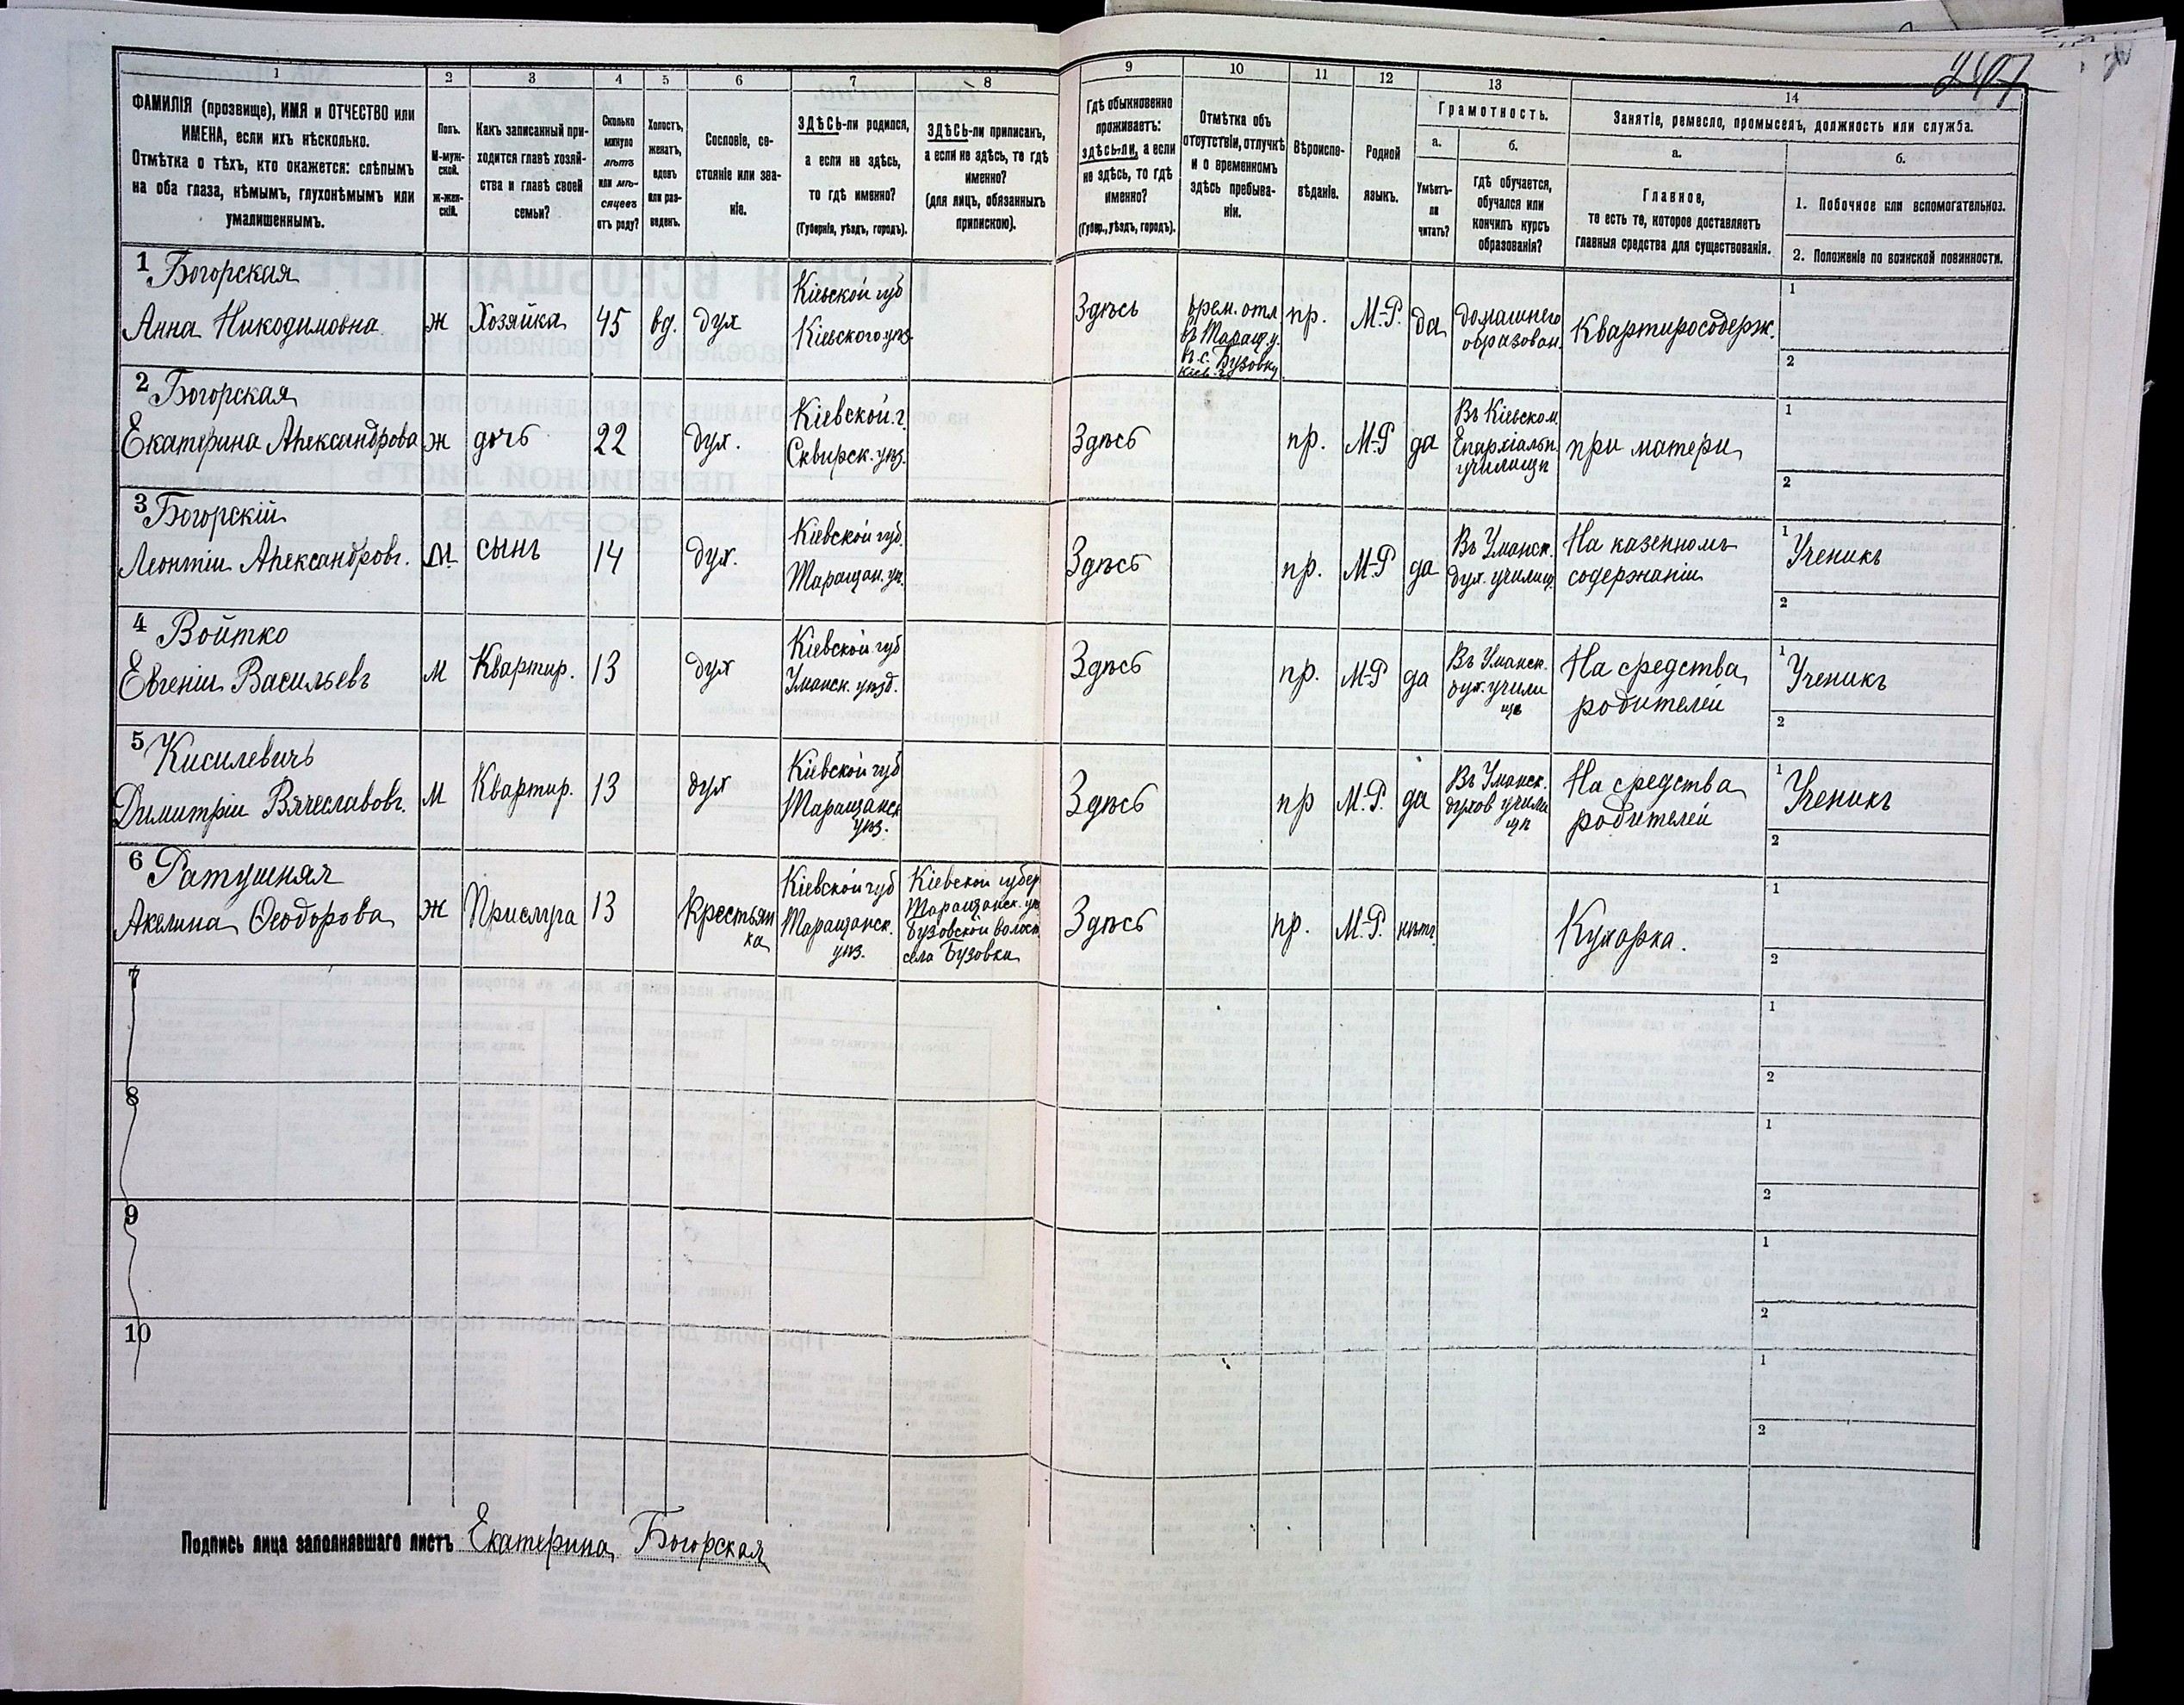 247
1 2 3 4 5 6 7 8 9 10 11 12 13 14
ФАМИЛІЯ (прозвище), ИМЯ и ОТЧЕСТВО или
ИМЕНА, если ихъ нѣсколько.
Отмѣтка о тѣхъ, кто окажется: слѣпымъ
на оба глаза, нѣмымъ, глухонѣмымъ или
умалишеннымъ.
Полъ.
М-муж-
ской.
ж-жен-
скій.
Какъ записанный при-
ходится главѣ хозяй-
ства и главѣ своей
семьи?
Сколько
минуло
лѣтъ
или мѣ-
сяцевъ
отъ роду?
Холостъ,
женатъ,
вдовъ
или раз-
веденъ.
Сословіе, со-
стояніе или зва-
ніе.
ЗДѢСЬ-ли родился,
а если не здѣсь,
то гдѣ именно?
(Губернія, уѣздъ, городъ).
ЗДѢСЬ-ли приписанъ,
а если не здѣсь, то гдѣ
именно?
(для лицъ, обязанныхъ
припискою).
Гдѣ обыкновенно
проживаетъ:
здѣсь-ли, а если
не здѣсь, то гдѣ
именно?
(Губер., уѣздъ, городъ).
Отмѣтка объ
отсутствіи, отлучкѣ
и о временномъ
здѣсь пребыва-
ніи.
Вѣроиспо-
вѣданіе.
Родной
языкъ.
Грамотность.
а.
Умѣетъ-
ли
читать?
б.
Гдѣ обучается,
обучался или
кончилъ курсъ
образованія?
Занятіе, ремесло, промыселъ, должность или служба.
а.
Главное,
то есть то, которое доставляетъ
главныя средства для существованія.
б.
1. Побочное или вспомогательноз.
2. Положеніе по воинской повинности.
1 Богорская
Анна Никодимовна
ж
Хозяйка
45
вд.
дух
Кіевской губ
Кіевского уѣз.
Здѣсь
врем. отл
въ Таращ. у.
въ с. Бузовку
Кіев. г.
пр.
М.-Р.
да
домашнего
образован.
Квартиросодерж.
1
2
2 Богорская
Екатерина Александрова
ж
дочь
22
дух.
Кіевской. г.
Сквирск. уѣз.
Здѣсь
пр.
М-Р
да
Въ Кіевском.
Епархіальн.
училищѣ
при матери
1
2
3 Богорскій
Леонтій Александровъ.
м
сынъ
14
дух.
Кіевской губ.
Таращан. уѣ.
Здѣсь
пр.
М-Р
да
Въ Уманск.
дух. училищ.
На казенномъ
содержаніи
1 Ученикъ
2
4 Войтко
Евгеній Васильевъ
м
Квартир.
13
дух
Кіевской губ
Уманск. уѣзд.
Здѣсь
пр.
М-Р
да
Въ Уманск.
дух. учили
щѣ
На средства
родителей
1 Ученикъ
2
5 Кисилевичъ
Димитрій Вячеславовъ.
м
Квартир.
13
дух
Кіевской губ
Таращанск
уѣз.
Здѣсь
пр
М.-Р.
да
Въ Уманск.
духов учили
щѣ
На средства
родителей
1 Ученикъ
2
6 Ратушная
Акелина Ѳеодорова
ж
Прислуга
13
Крестьян
ка
Кіевской губ
Таращанск.
уѣз.
Кіевской губер
Таращанск. уѣ
Бузовской волост
села Бузовки
Здѣсь
пр.
М.-Р.
нѣтъ.
Кухарка.
1
2
7
1
2
8
1
2
9
1
2
10
1
2
Подпись лица заполнявшаго листъ Екатерина Богорская